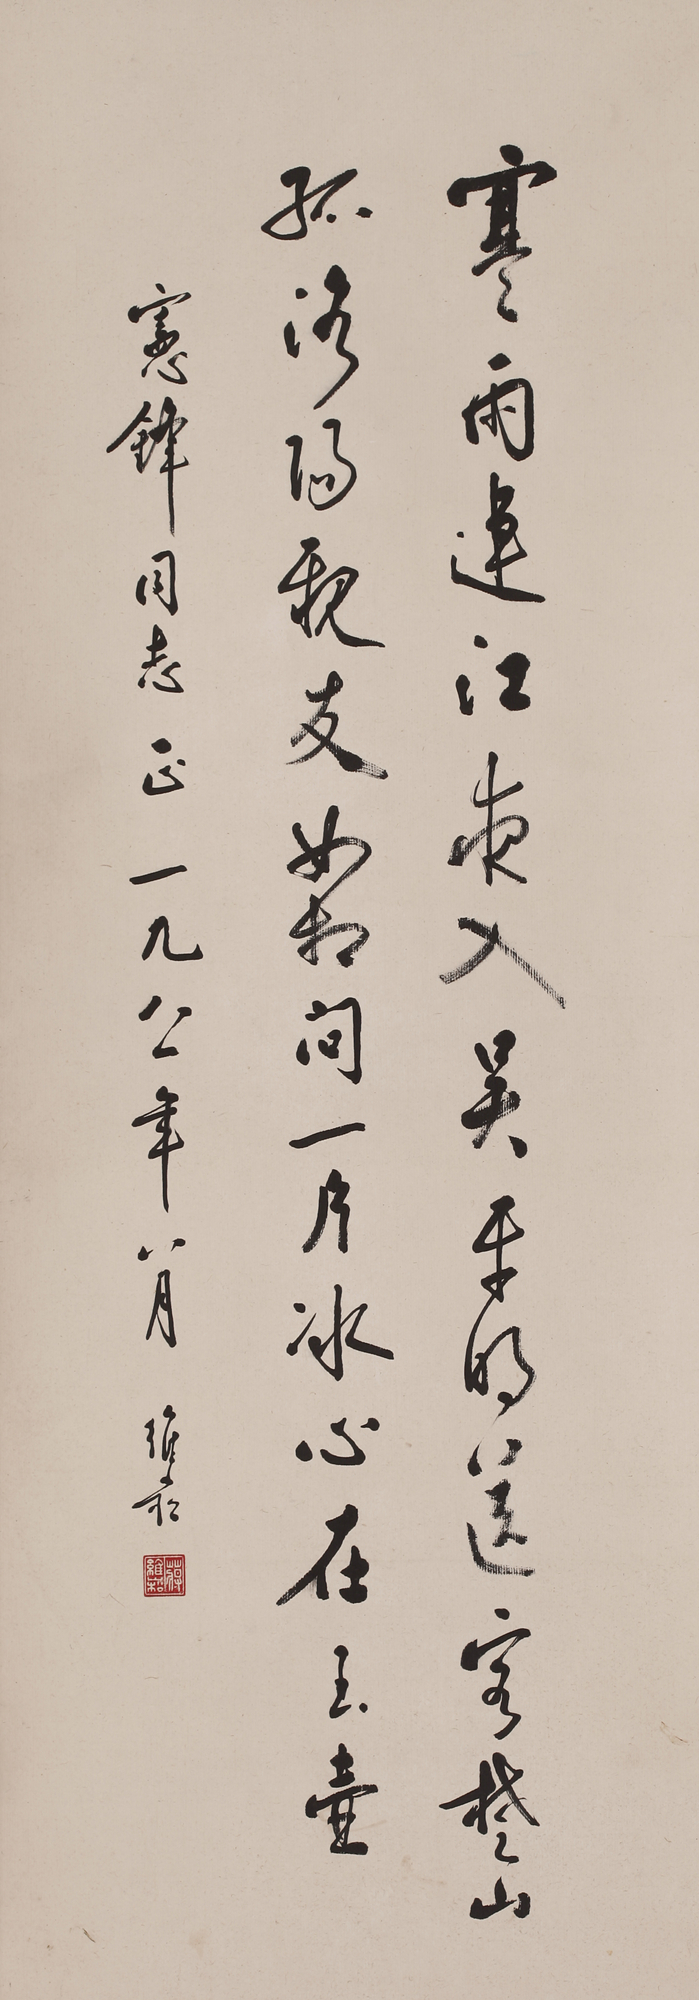 寒雨連江夜入吴平明送客楚山
孤洛陽親友如相問一片冰心在玉壺
憲鋒同志正一九八一年八月 維崧
蔣維崧